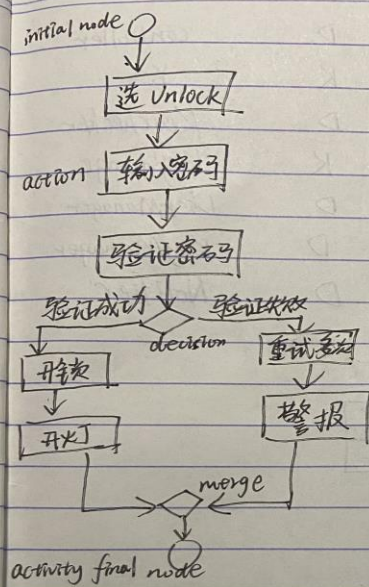 initial node
选 Unlock
action
输入密码
验证密码
验证成功
验证失败
decision
开锁
重试多次
开灯
警报
merge
activity final node